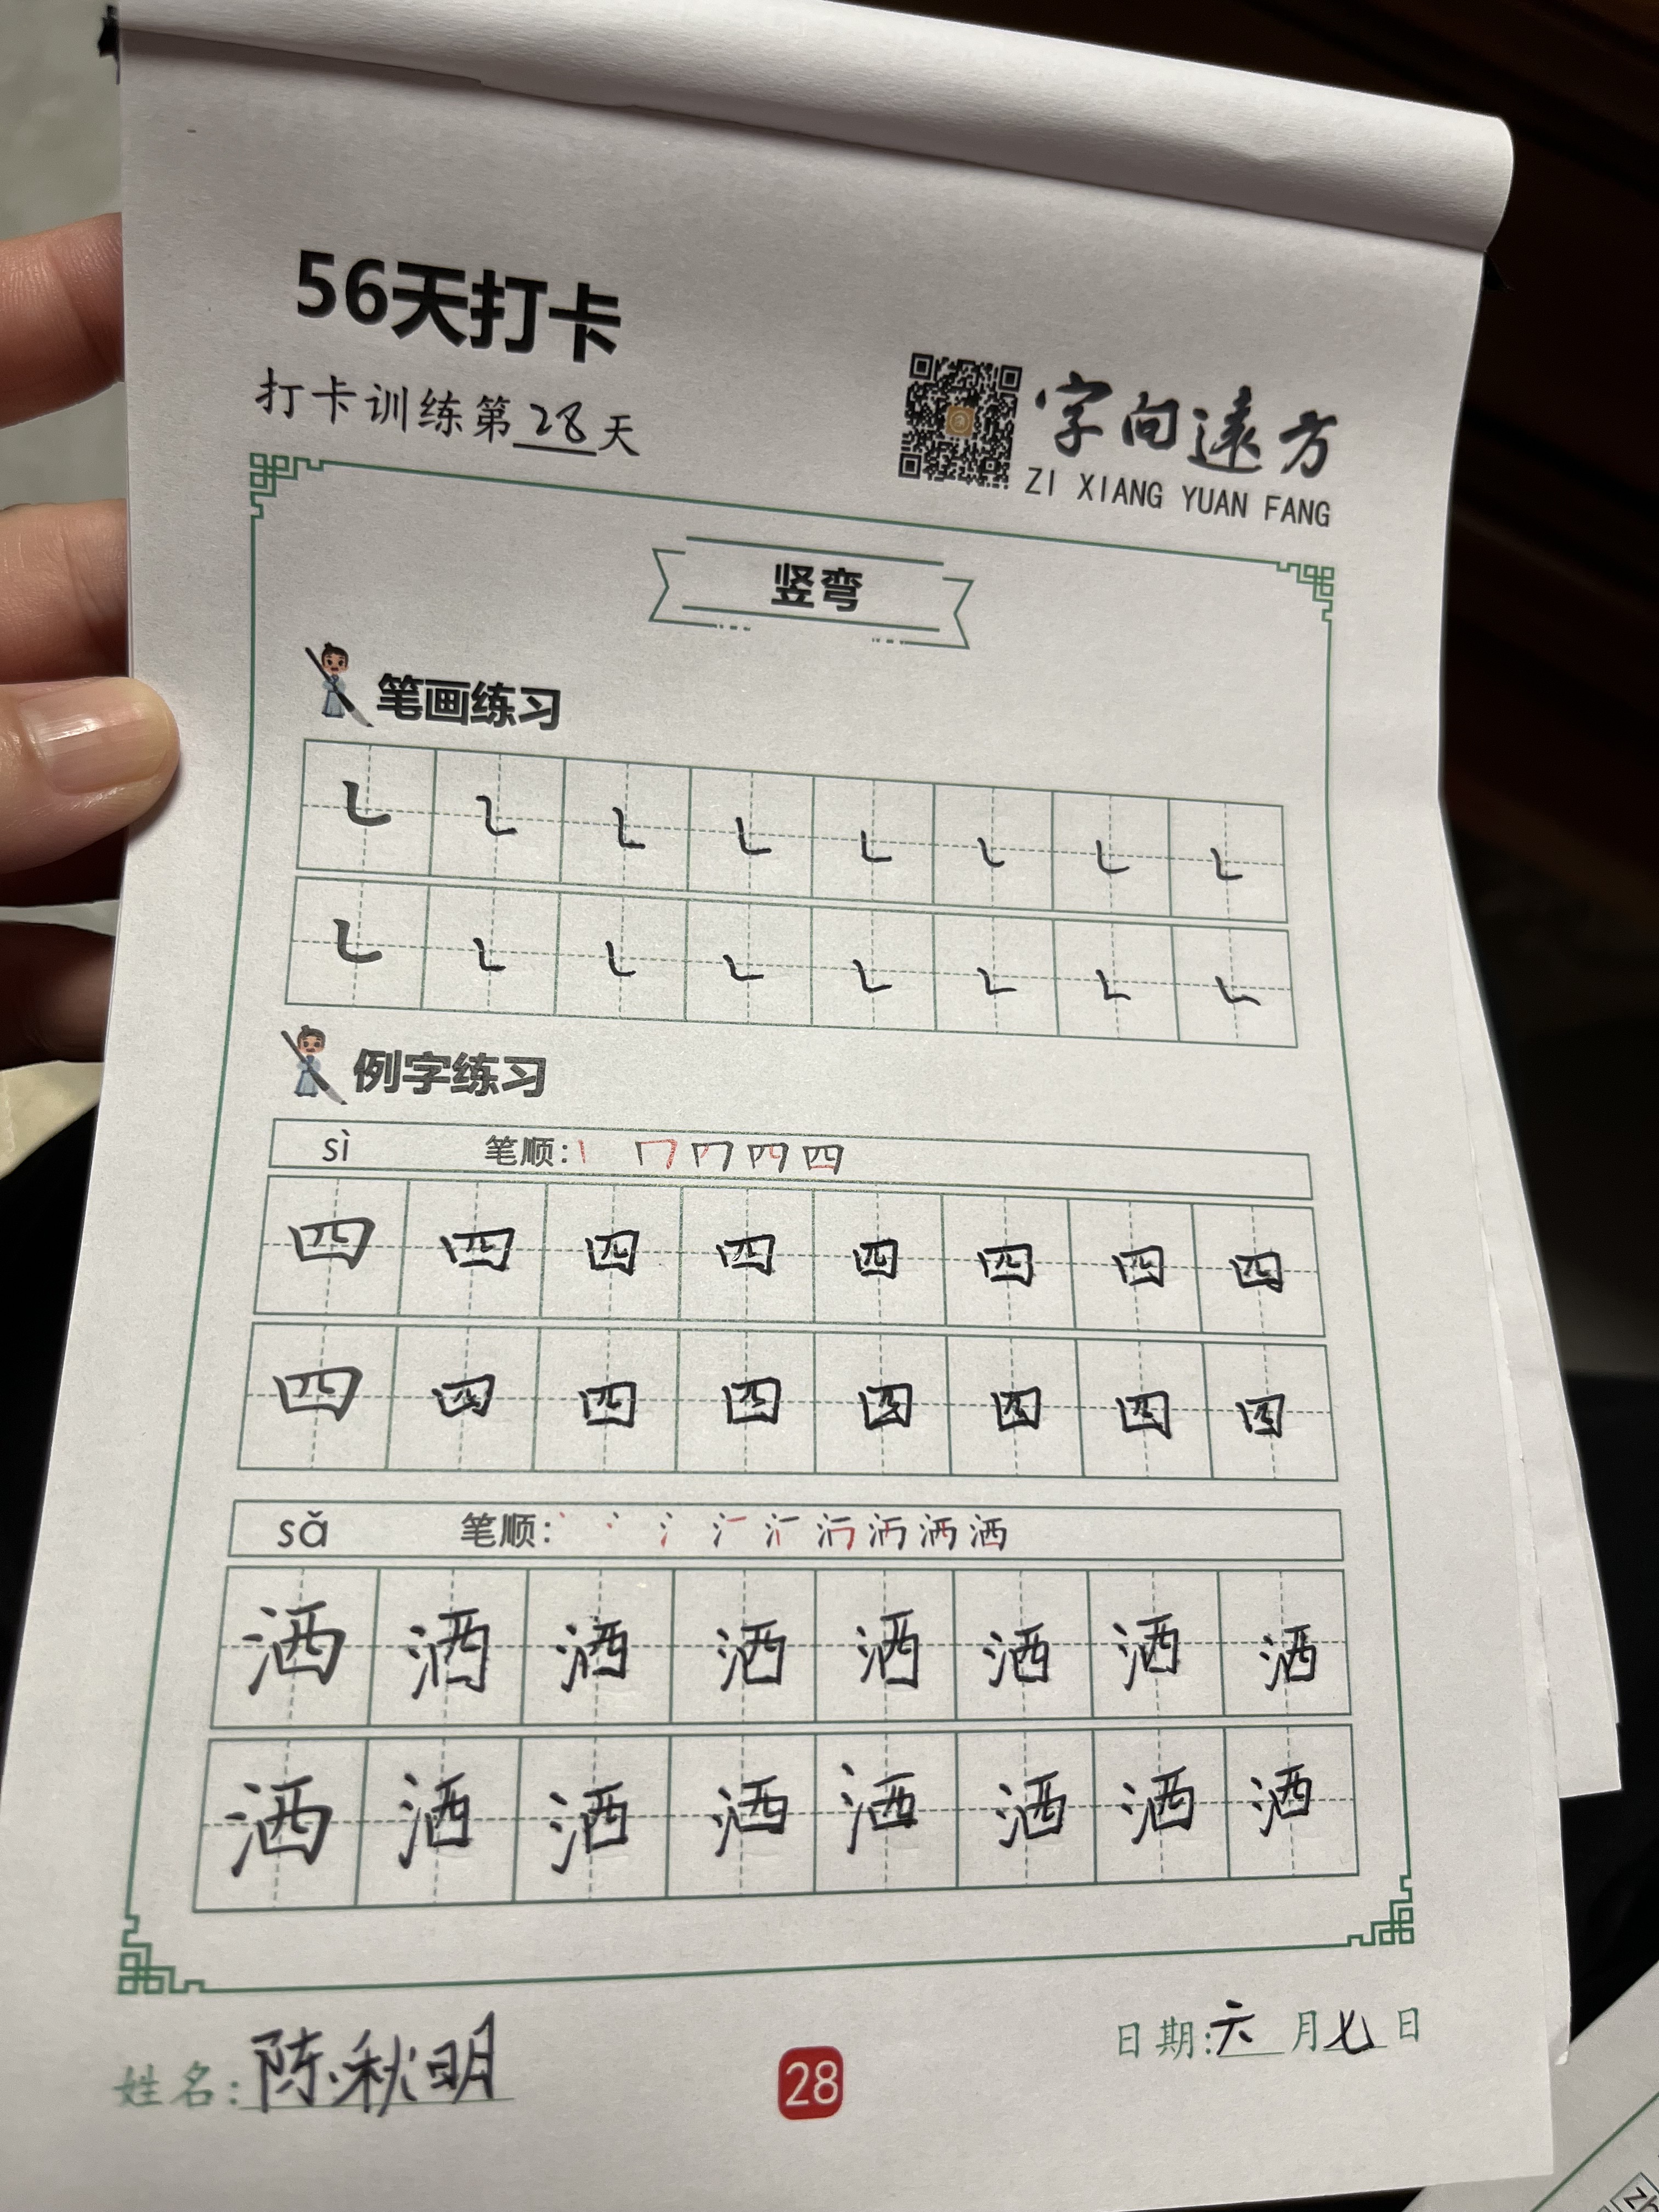 56天打卡
打卡训练第28天
字向遠方
ZI XIANG YUAN FANG
竖弯
笔画练习
㇄ ㇄ ㇄ ㇄ ㇄ ㇄ ㇄ ㇄
㇄ ㇄ ㇄ ㇄ ㇄ ㇄ ㇄ ㇄
例字练习
sì 笔顺:
四 四 四 四 四 四 四 四
四 四 四 四 四 四 四 四
sǎ 笔顺:
洒 洒 洒 洒 洒 洒 洒 洒
洒 洒 洒 洒 洒 洒 洒 洒
姓名:陈秋明
28
日期:六月七日